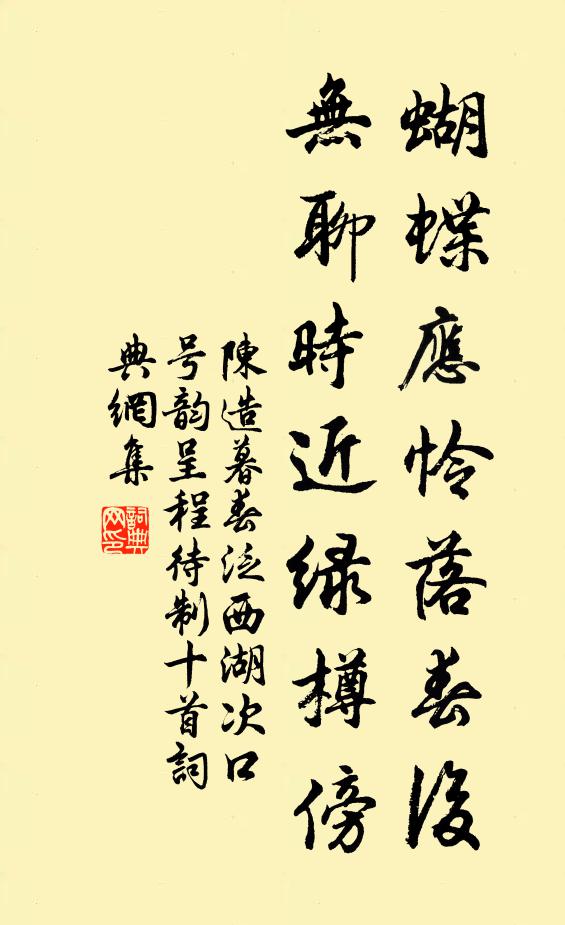 蝴蝶應怜落春後
無聊時近緑樽傍
陳造暮春泛西湖次口
号韵呈程待制十首詞
典網集
詞典
网印